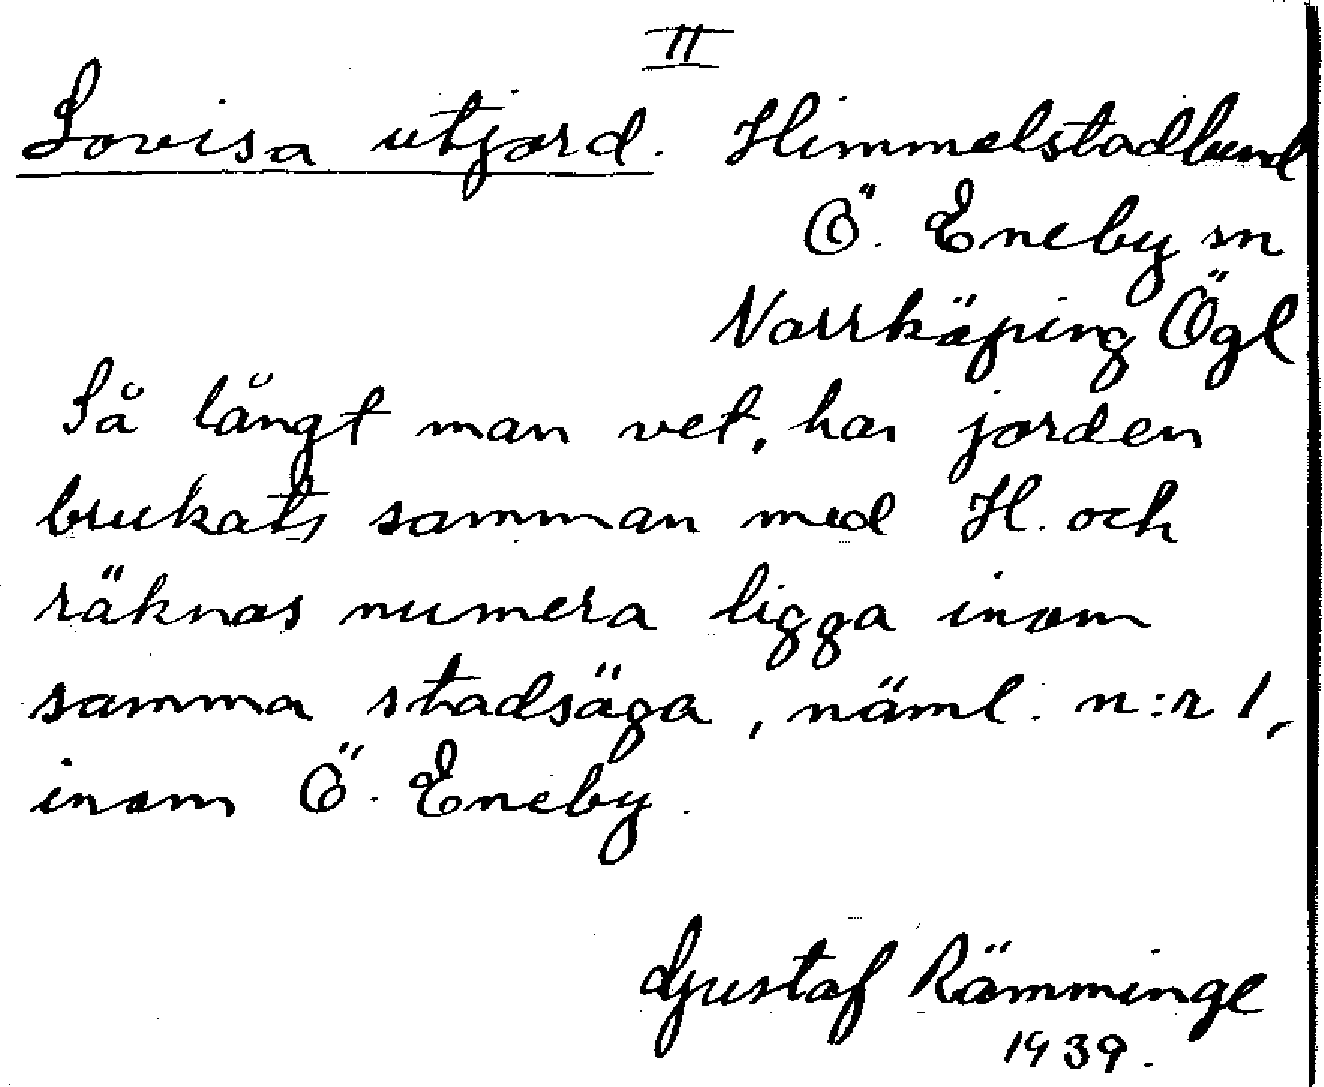 II
Lovisa utjord. Himmelstadlund
Ö. Eneby sn
Norrköping Ögl
Så långt man vet, har jorden
brukats samman med H. och
räknas numera ligga inom
samma stadsäga, näml. n:r 1,
inom Ö. Eneby.
Gustaf Rämminge
1939.